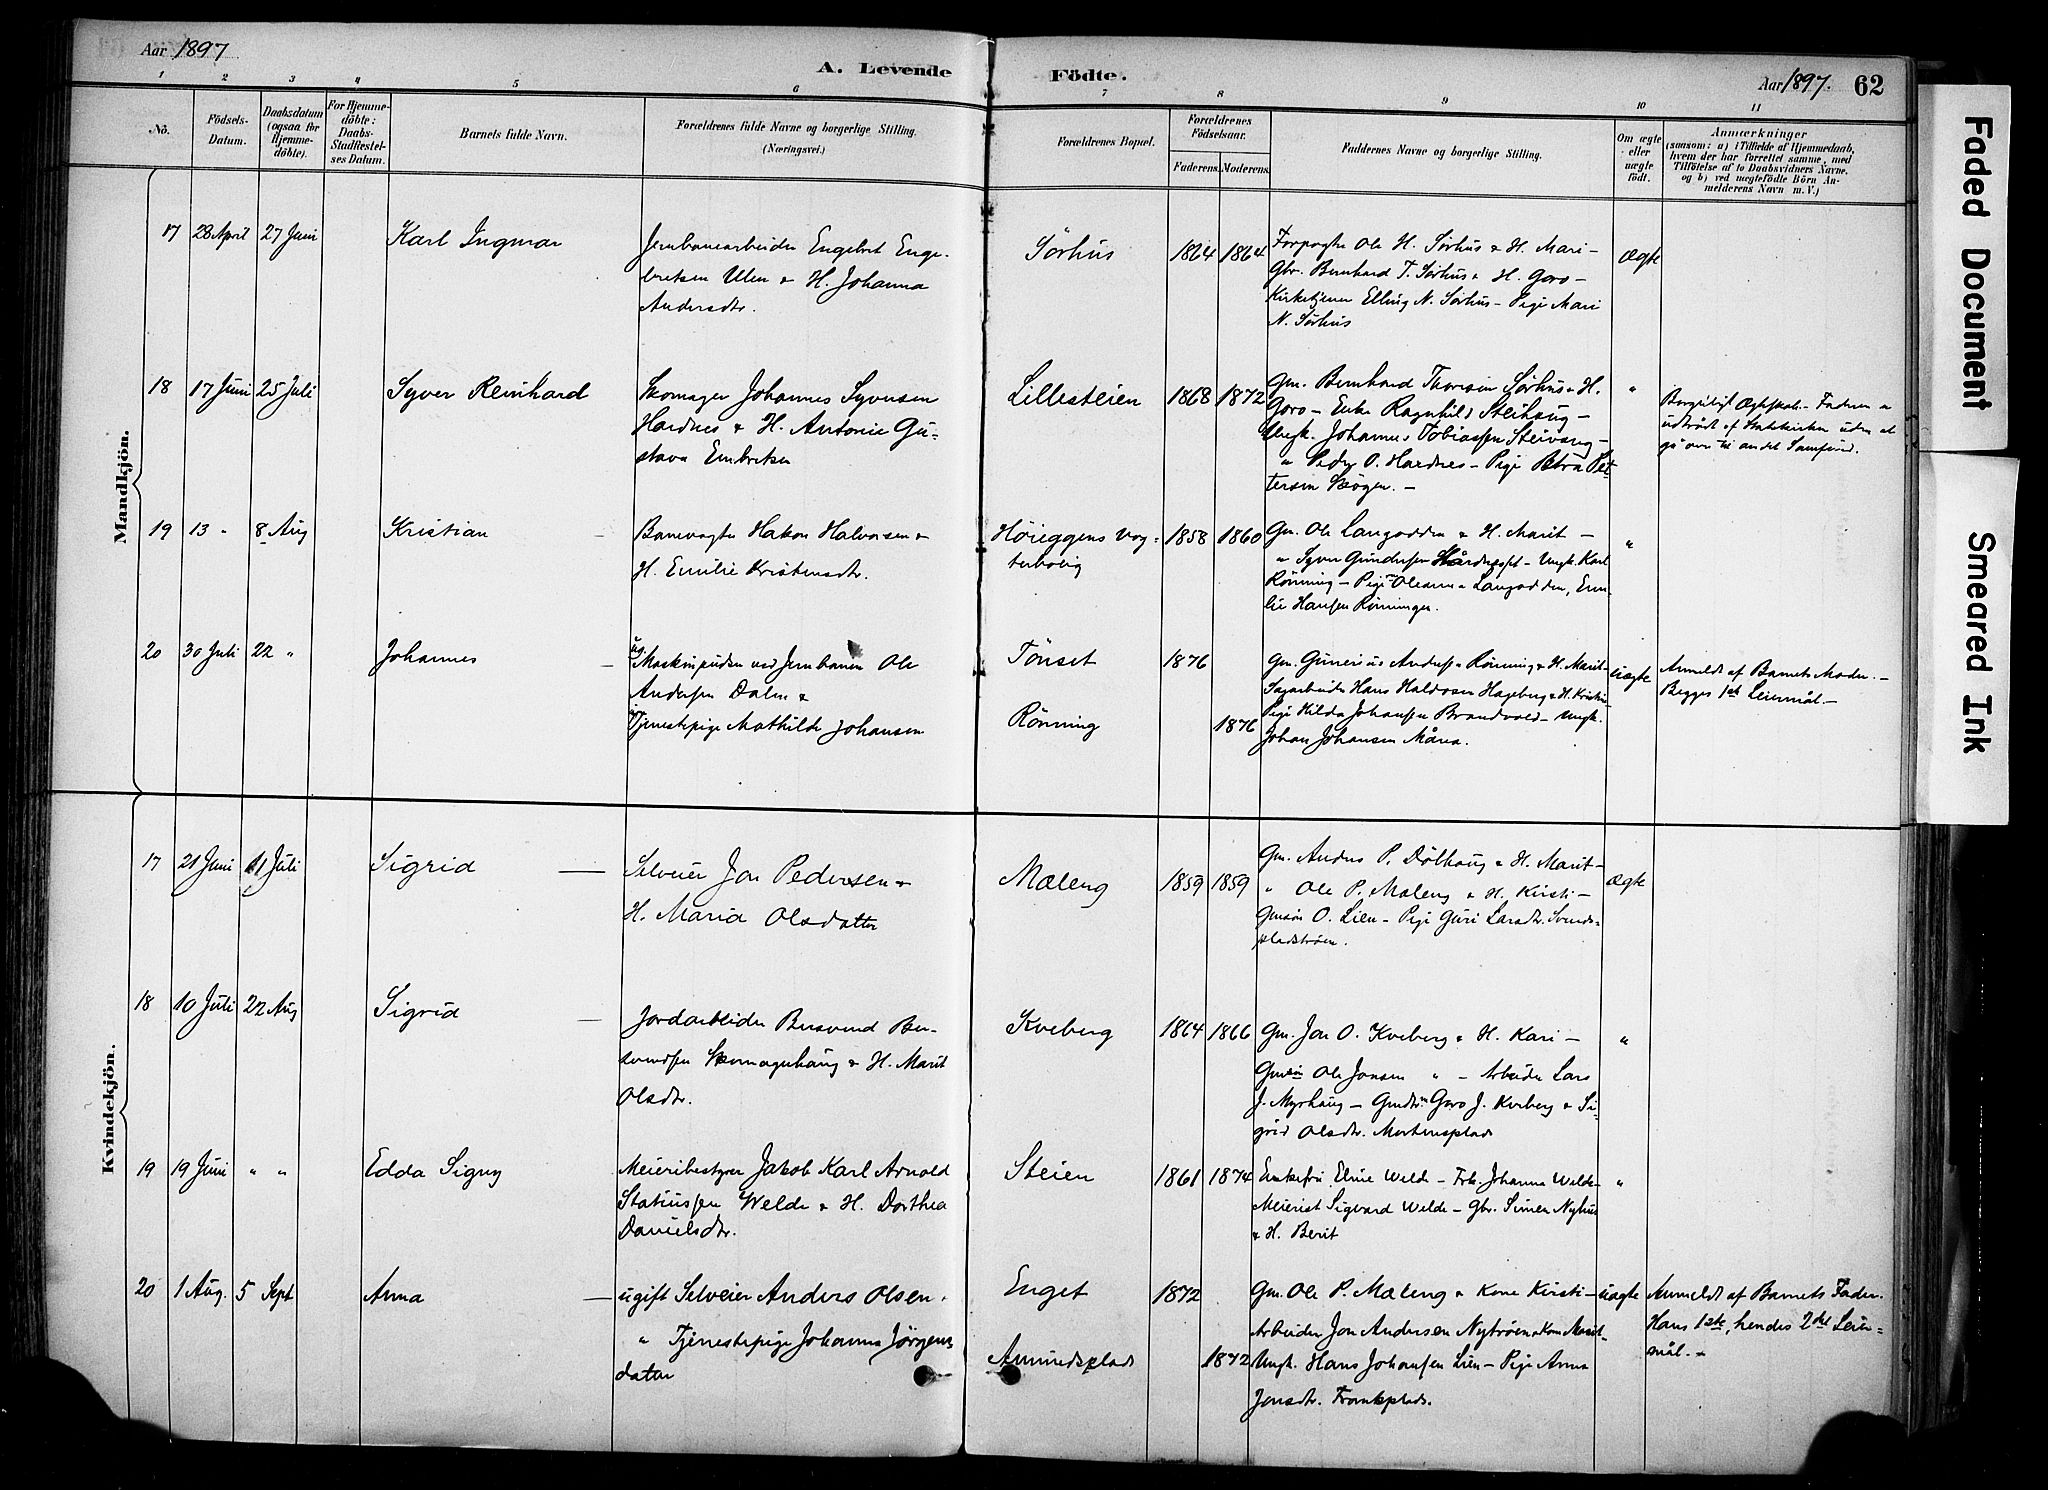 Aar 1897
A. Levende Födte.
Aar 1897. 62
1 2 3 4 5 6 7 8 9 10 11
No.
Födsels-
Datum.
Daabsdatum
(ogsaa for
Hjemme-
döbte).
For Hjemme-
döbte:
Daabs-
Stadfæstel-
ses Datum.
Barnets fulde Navn.
Forældrenes fulde Navne og borgerlige Stilling.
(Næringsvei.)
Forældrenes Bopæl.
Forældrenes
Födselsaar.
Faderens. Moderens.
Faddernes Navne og borgerlige Stilling.
Om ægte
eller
uægte
födt.
Anmærkninger
(saasom: a) i Tilfælde af Hjemmedaab,
hvem der har forrettet samme, med
Tilföielse af to Daabsvidners Navne,
og b) ved uægtefödte Börn An-
melderens Navn m. V.)
Mandkjön.
17 28 April 27 Juni
Karl Ingmar
Jernbanearbeider Engebret Enge-
bretsen Ulen & H. Johanna
Andersdtr.
Sörhus
1864 1864
Forpagter Ole H. Sörhus & H. Mari –
Gbr. Bernhard T. Sörhus & H. Goro –
Kirketjener Elling N. Sörhus – Pige Mari
N. Sörhus
Ægte
18 17 Juni 25 Juli
Syver Reinhard
Skomager Johannes Syversen
Hardnes & H. Antonie Gu-
stava Embretsen
Lillesteien
1868 1872
Gm. Bernhard Thoresen Sörhus & H.
Goro – Enke Ragnhild Steihaug –
Ungk. Johannes Tobiassen Steivang –
" Peder O. Hardnes – Pige Petra Pet-
tersen Skogen. –
"
Borgerligt Ægteskab. – Faderen er
udtrådt af Statskirken uden at
gå over til andet Samfund.
19 13 " 8 Aug
Kristian –
Banevogter Hakon Halvorsen &
H. Emilie Kristensdtr.
Höieggens Vog-
terbolig
1858 1860
Gm. Ole Langodden & H. Marit –
" Syver Gundersen – Ungk. Karl
Rönning – Pige Oleanna Langodden, Emi-
lie Hansen Rönningen.
"
20 30 Juli 22 "
Johannes –
ug. Maskinpudser ved Jernbanen Ole
Andersen Dalen &
Tjenestepige Mathilde Johansen
Tönset
Rönning
1876
1876
Gm. Gunerius Andersen Rönning & H. Marit –
Sagarbeider Hans Halvorsen Hageberg & H. Kristi –
Pige Hilda Johansen Brandvold – Ungk.
Johan Johansen Måna.
uægte
Anmeldt af Barnets Moder. –
Begges 1ste Leiermål. –
Kvindekjön.
17 21 Juni 11 Juli
Sigrid –
Selveier Jon Pedersen &
H. Maria Olsdatter
Mæleng
1859 1859
Gm. Anders P. Dölhaug & H. Marit –
" Ole P. Mæleng & H. Kirsti –
Gmsön O. Lien – Pige Guri Larsdtr. Svends-
pladströen.
Ægte
18 10 Juli 22 Aug
Sigrid –
Jordarbeider Bersvend Ber-
svendsen Skomagerhaug & H. Marit
Olsdtr.
Kveberg
1864 1866
Gm. Jon O. Kveberg & H. Kari –
Gmsön Ole Jonsen " – Arbeider Lars
J. Myrhaug – Gmdtr. Goro J. Kveberg & Si-
grid Olsdtr. Mortensplads
"
19 19 Juni " "
Edda Signy
Meieribestyrer Jakob Karl Arnold
Statiussen Welde & H. Dorthea
Danielsdtr.
Steien
1861 1874
Enkefru Elise Welde – Frk. Johanna Welde –
Meierist Sigvard Welde – Gbr. Simen Nyhus
& H. Berit
"
20 1 Aug. 5 Sept
Anna –
ugift Selveier Anders Olsen &
" Tjenestepige Johanna Jörgens-
datter
Enget
Amundsplads
1872
1872
Gm. Ole P. Mæleng & Kone Kirsti –
Arbeider Jon Andersen Nytröen & Kone Marit –
Ungk. Hans Johansen Lien – Pige Anna
Jonsdtr. Tronsplads.
uægte
Anmeldt af Barnets Fader.
Hans 1ste, hendes 2det Leier-
mål. –
Faded Document
Smeared Ink